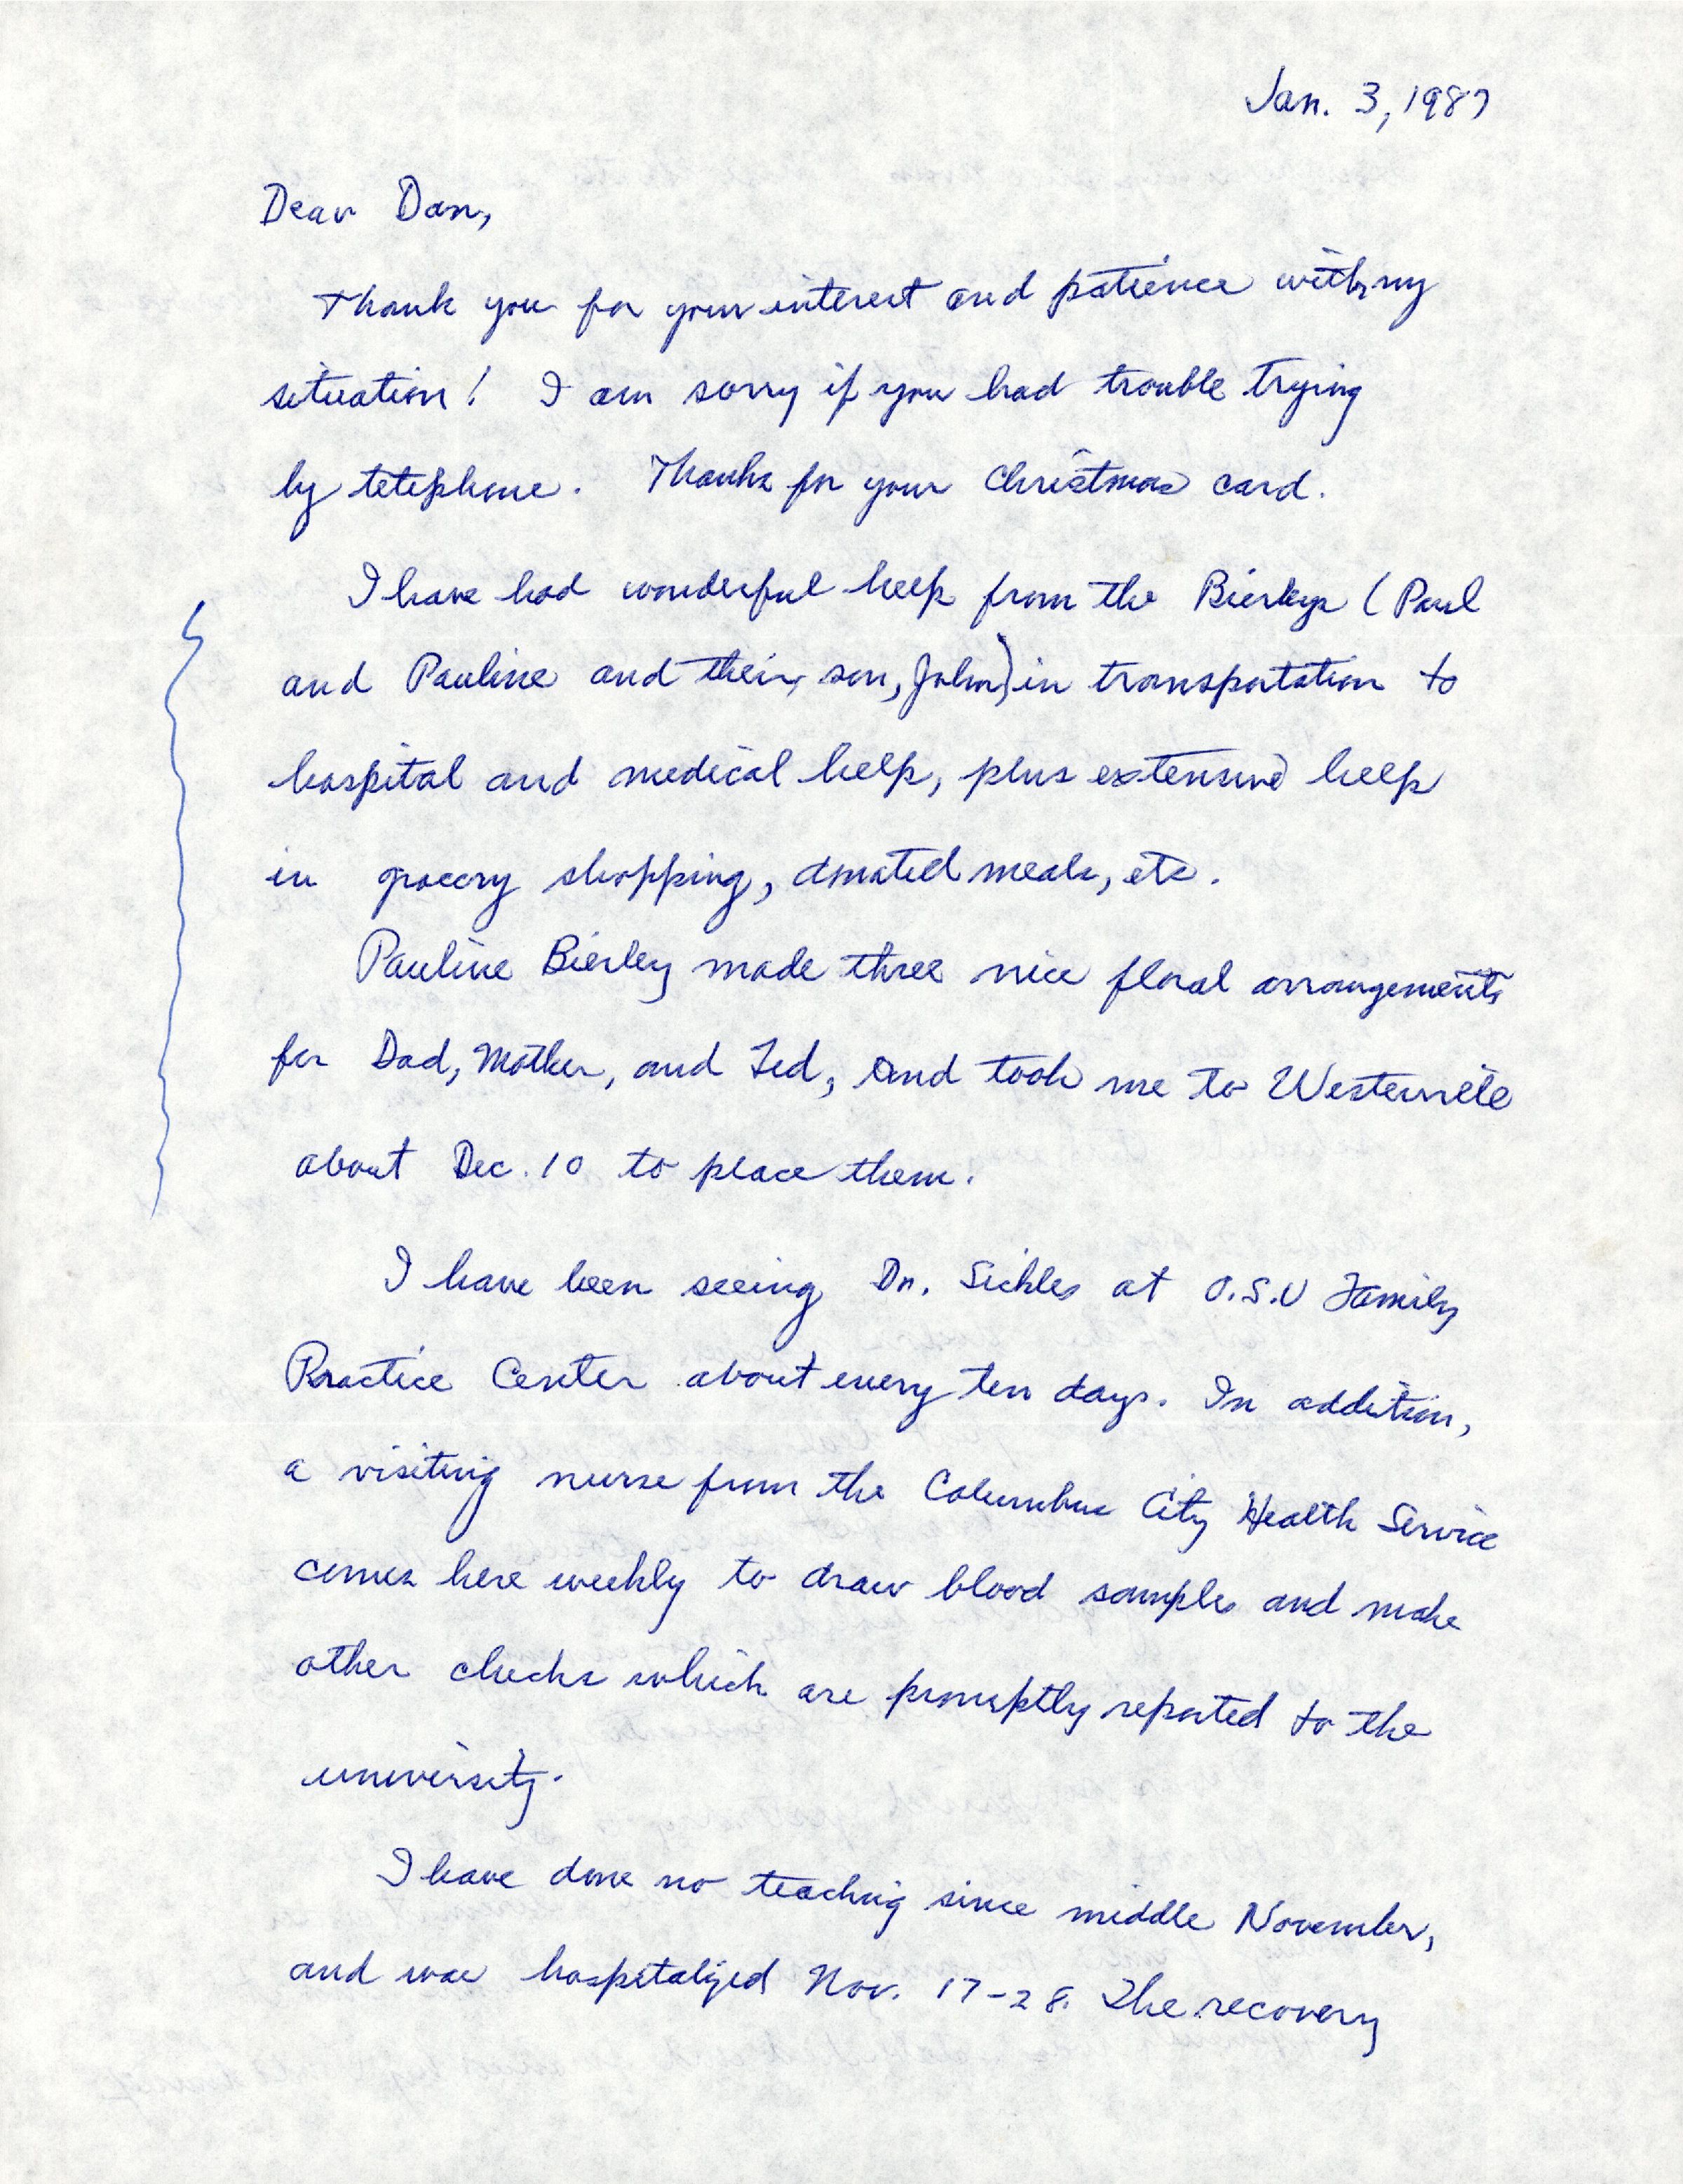 Jan. 3, 1987
Dear Dan,
Thank you for your interest and patience with my
situation! I am sorry if you had trouble trying
by telephone. Thanks for your Christmas card.
I have had wonderful help from the Bierleys (Paul
and Pauline and their son, John) in transportation to
hospital and medical help, plus extensive help
in grocery shopping, donated meals, etc.
Pauline Bierley made three nice floral arrangements
for Dad, Mother, and Ted, and took me to Westerville
about Dec. 10 to place them.
I have been seeing Dr. Sickles at O.S.U Family
Practice Center about every ten days. In addition,
a visiting nurse from the Columbus City Health Service
comes here weekly to draw blood samples and make
other checks which are promptly reported to the
university.
I have done no teaching since middle November,
and was hospitalized Nov. 17-28. The recovery